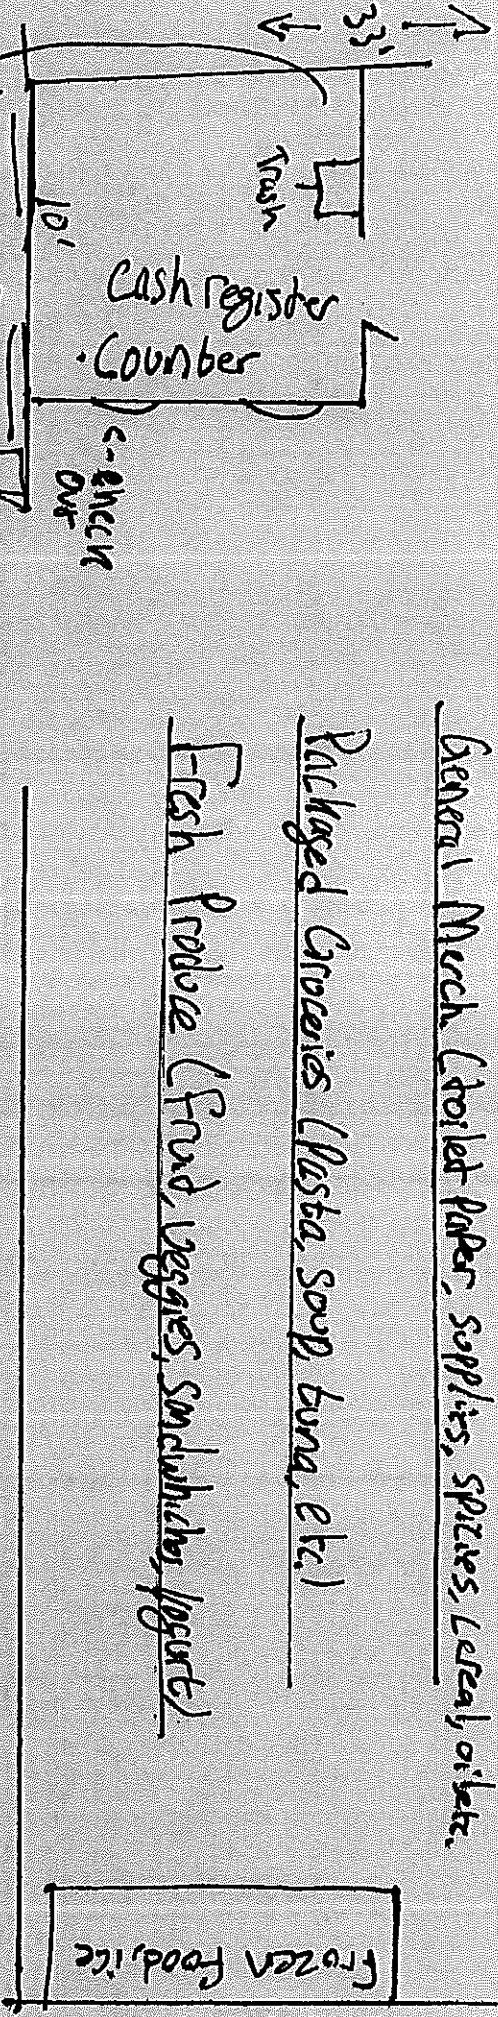 33'
Trash
10'
Cash register
Counter
<- check
out
General Merch (toilet paper, supplies, spizies, cereal, oil etc.
Packaged Groceries (Pasta, soup, tuna, etc.)
Fresh Produce (Fruit, veggies, sandwiches, yogurt)
Frozen food, ice